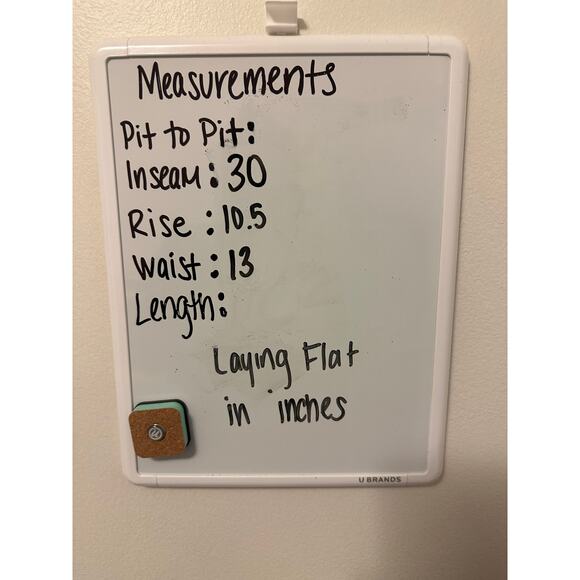 Measurements
Pit to Pit:
Inseam: 30
Rise: 10.5
Waist: 13
Length:
Laying Flat
in inches
U BRANDS